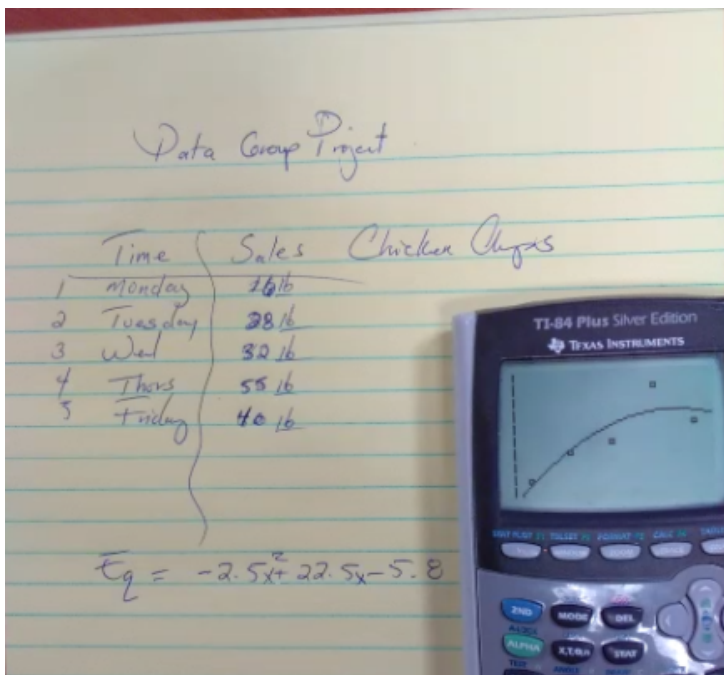 Data Group Project
Time Sales Chicken
1 Monday 16 lb
2 Tuesday 28 lb
3 Wed 32 lb
4 Thurs 55 lb
5 Friday 40 lb
Eq = -2.5x²+22.5x-5.8
TI-84 Plus Silver Edition
TEXAS INSTRUMENTS
STAT PLOT F1 TBLSET F2 FORMAT F3 CALC F4
2ND MODE DEL
ALPHA X,T,θ,n STAT